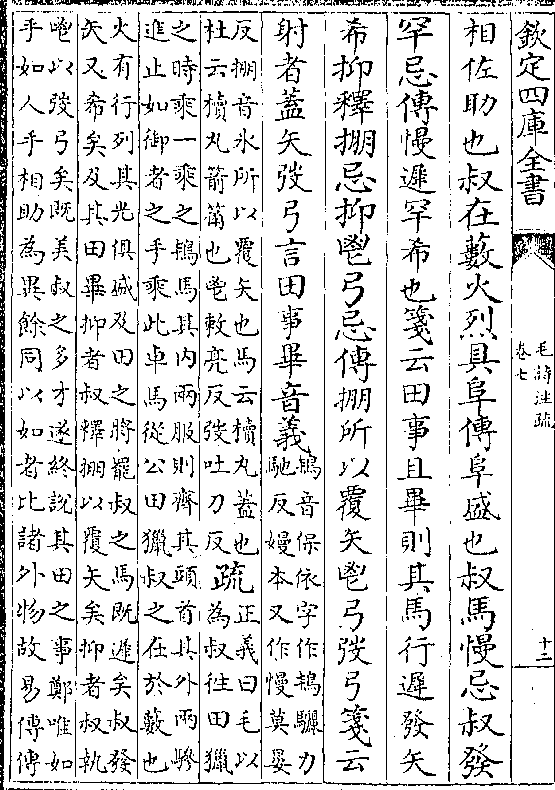 欽定四庫全書
毛詩注疏
卷七
十二
相佐助也叔在藪火烈具阜傳阜盛也叔馬慢忌叔發
罕忌傳慢遲罕希也箋云田事且畢則其馬行遲發矢
希抑釋掤忌抑鬯弓忌傳掤所以覆矢鬯弓弢弓箋云
射者蓋矢弢弓言田事畢音義
鴇音保依字作鳵驪力
馳反嫚本又作慢莫晏
反掤音氷所以覆矢也馬云犢丸蓋也
杜云犢丸箭筩也鬯敕亮反弢吐刀反
疏
正義曰毛以
為叔往田獵
之時乘一乘之鴇馬其内兩服則齊其頭首其外兩驂
進止如御者之手乘此車馬從公田獵叔之在於藪也
火有行列其光俱盛及田之將罷叔之馬既遲矣叔發
矢又希矣及其田畢抑者叔釋掤以覆矢矣抑者叔執
鬯以弢弓矣既美叔之多才遂終說其田之事鄭唯如
手如人手相助為異餘同以如者比諸外物故易傳傳